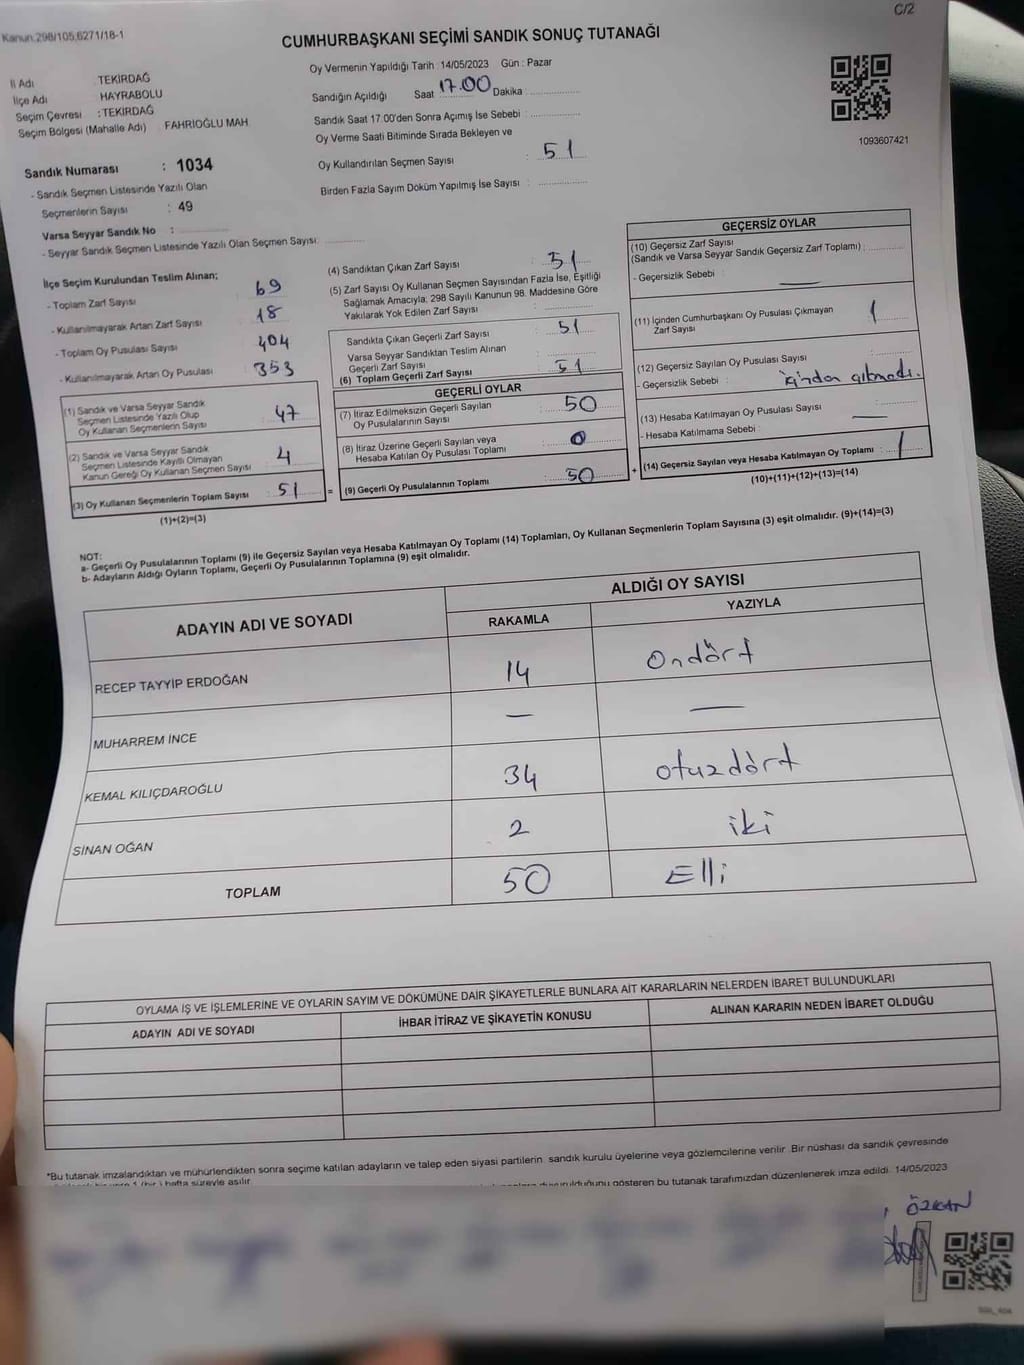 Kanun.298/105,6271/18-1
C/2
CUMHURBAŞKANI SEÇİMİ SANDIK SONUÇ TUTANAĞI
İl Adı : TEKİRDAĞ
İlçe Adı : HAYRABOLU
Seçim Çevresi : TEKİRDAĞ
Seçim Bölgesi (Mahalle Adı) FAHRİOĞLU MAH.
Sandık Numarası : 1034
- Sandık Seçmen Listesinde Yazılı Olan
Seçmenlerin Sayısı : 49
Varsa Seyyar Sandık No :
- Seyyar Sandık Seçmen Listesinde Yazılı Olan Seçmen Sayısı:
Oy Vermenin Yapıldığı Tarih : 14/05/2023 Gün : Pazar
Sandığın Açıldığı Saat 17.00 Dakika :
Sandık Saat 17.00'den Sonra Açımış İse Sebebi :
Oy Verme Saati Bitiminde Sırada Bekleyen ve
Oy Kullandırılan Seçmen Sayısı : 51
Birden Fazla Sayım Döküm Yapılmış İse Sayısı :
1093607421
İlçe Seçim Kurulundan Teslim Alınan;
- Toplam Zarf Sayısı : 69
- Kullanılmayarak Artan Zarf Sayısı : 18
- Toplam Oy Pusulası Sayısı : 404
- Kullanılmayarak Artan Oy Pusulası : 353
(1) Sandık ve Varsa Seyyar Sandık
Seçmen Listesinde Yazılı Olup
Oy Kullanan Seçmenlerin Sayısı : 47
(2) Sandık ve Varsa Seyyar Sandık
Seçmen Listesinde Kayıtlı Olmayan
Kanun Gereği Oy Kullanan Seçmen Sayısı : 4
(3) Oy Kullanan Seçmenlerin Toplam Sayısı : 51 =
(1)+(2)=(3)
(4) Sandıktan Çıkan Zarf Sayısı : 51
(5) Zarf Sayısı Oy Kullanan Seçmen Sayısından Fazla İse, Eşitliği
Sağlamak Amacıyla; 298 Sayılı Kanunun 98. Maddesine Göre
Yakılarak Yok Edilen Zarf Sayısı :
Sandıkta Çıkan Geçerli Zarf Sayısı : 51
Varsa Seyyar Sandıktan Teslim Alınan
Geçerli Zarf Sayısı :
(6) Toplam Geçerli Zarf Sayısı : 51
GEÇERLİ OYLAR
(7) İtiraz Edilmeksizin Geçerli Sayılan
Oy Pusulalarının Sayısı : 50
(8) İtiraz Üzerine Geçerli Sayılan veya
Hesaba Katılan Oy Pusulası Toplamı : 0
(9) Geçerli Oy Pusulalarının Toplamı : 50 +
GEÇERSİZ OYLAR
(10) Geçersiz Zarf Sayısı
(Sandık ve Varsa Seyyar Sandık Geçersiz Zarf Toplamı) :
- Geçersizlik Sebebi : —
(11) İçinden Cumhurbaşkanı Oy Pusulası Çıkmayan
Zarf Sayısı : 1
(12) Geçersiz Sayılan Oy Pusulası Sayısı :
- Geçersizlik Sebebi : içinden çıkmadı.
(13) Hesaba Katılmayan Oy Pusulası Sayısı : —
- Hesaba Katılmama Sebebi :
(14) Geçersiz Sayılan veya Hesaba Katılmayan Oy Toplamı : 1
(10)+(11)+(12)+(13)=(14)
NOT:
a- Geçerli Oy Pusulalarının Toplamı (9) ile Geçersiz Sayılan veya Hesaba Katılmayan Oy Toplamı (14) Toplamları, Oy Kullanan Seçmenlerin Toplam Sayısına (3) eşit olmalıdır. (9)+(14)=(3)
b- Adayların Aldığı Oyların Toplamı, Geçerli Oy Pusulalarının Toplamına (9) eşit olmalıdır.
ADAYIN ADI VE SOYADI
ALDIĞI OY SAYISI
RAKAMLA YAZIYLA
RECEP TAYYİP ERDOĞAN 14 Ondört
MUHARREM İNCE — —
KEMAL KILIÇDAROĞLU 34 otuzdört
SİNAN OĞAN 2 iki
TOPLAM 50 Elli
OYLAMA İŞ VE İŞLEMLERİNE VE OYLARIN SAYIM VE DÖKÜMÜNE DAİR ŞİKAYETLERLE BUNLARA AİT KARARLARIN NELERDEN İBARET BULUNDUKLARI
ADAYIN ADI VE SOYADI İHBAR İTİRAZ VE ŞİKAYETİN KONUSU ALINAN KARARIN NEDEN İBARET OLDUĞU
*Bu tutanak imzalandıktan ve mühürlendikten sonra seçime katılan adayların ve talep eden siyasi partilerin sandık kurulu üyelerine veya gözlemcilerine verilir. Bir nüshası da sandık çevresinde
1 (bir) hafta süreyle asılır.
duyurulduğunu gösteren bu tutanak tarafımızdan düzenlenerek imza edildi. 14/05/2023
ÖZKAN